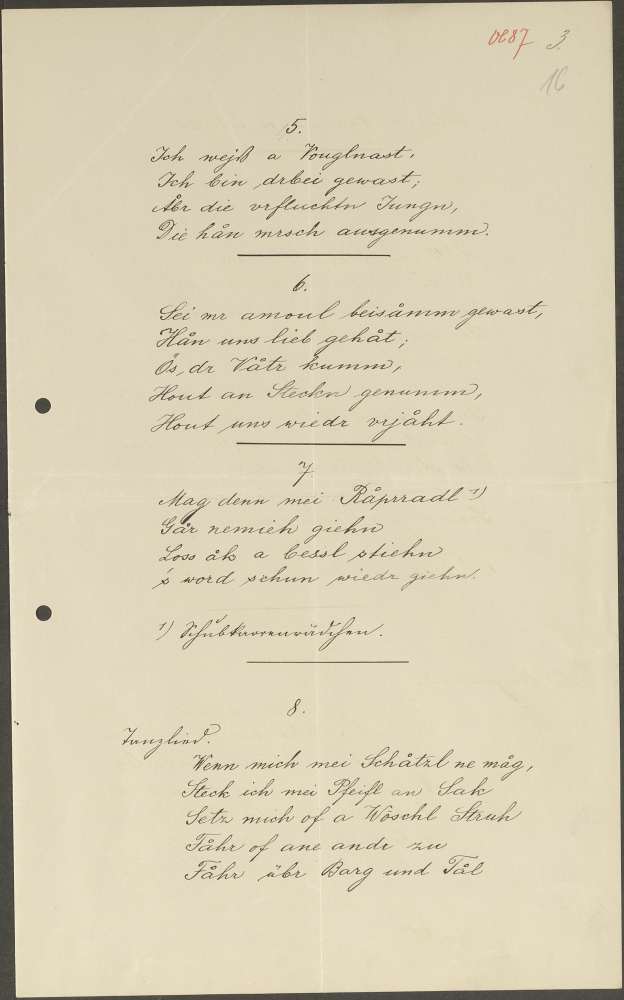 0687 3.
16
5.
Ich wejß a Vouglnast,
Ich bin drbei gewast;
Åbr die vrfluchtn Jungn,
Die hån mrsch ausgenumm.
6.
Sei mr amoul beisåmm gewast,
Hån uns lieb gehåt;
Ös, dr Våtr kumm,
Hout an Steckn genumm,
Hout uns wiedr vrjåht.
7.
Mag denn mei Råprradl ¹)
Går nemieh giehn
Loss åk a bessl stiehn
's word schun wiedr giehn.
¹) Schubkarrenrädchen.
8.
Tanzlied.
Wenn mich mei Schåtzl ne måg,
Steck ich mei Pfeifl an Sak
Setz mich of a Wöschl Struh
Fåhr of ane andr zu
Fåhr übr Barg und Tål